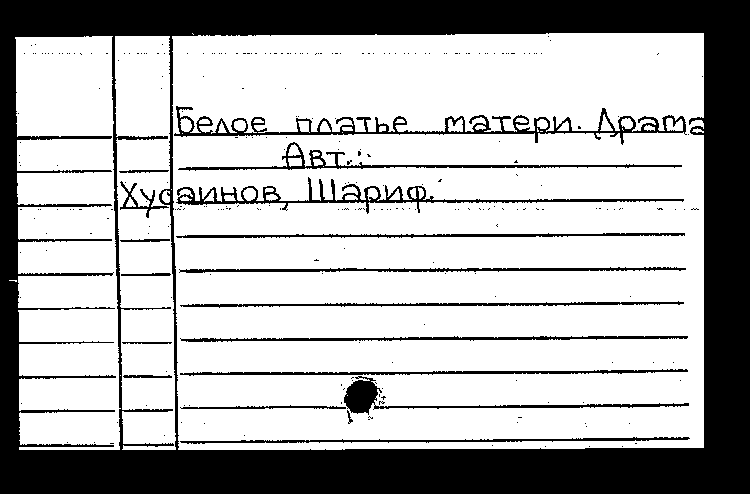 Белое платье матери. Драма
Авт.:
Хусаинов, Шариф.